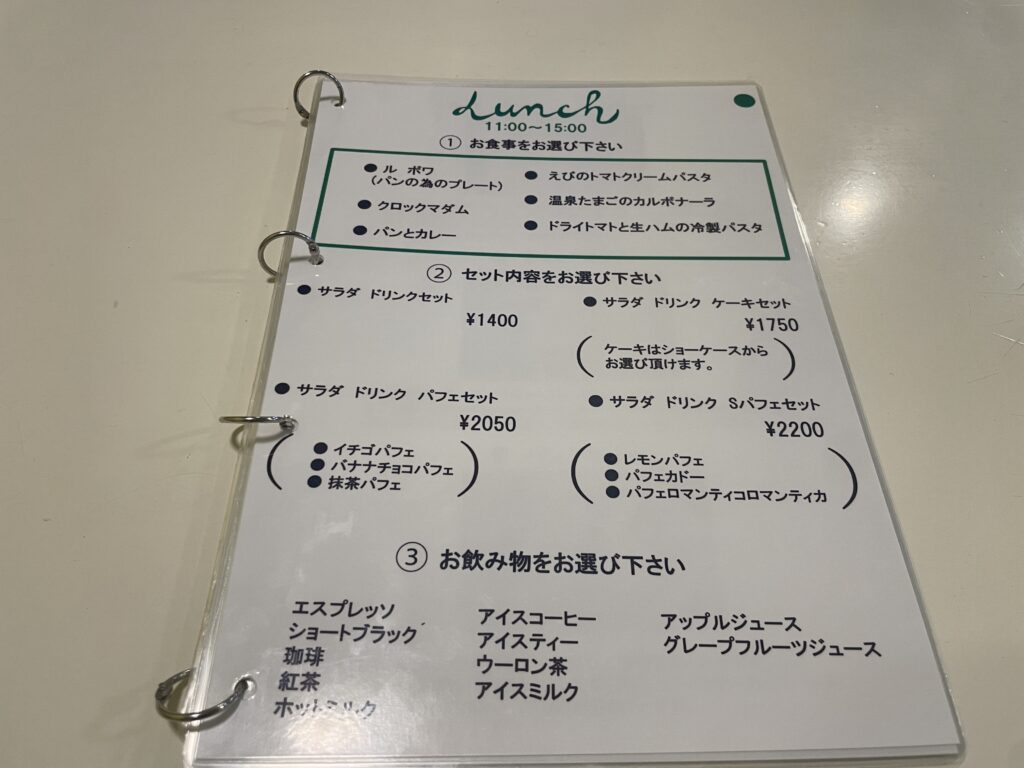 Lunch
11:00～15:00
① お食事をお選び下さい
● ル ポワ
（パンの為のプレート）
● クロックマダム
● パンとカレー
● えびのトマトクリームパスタ
● 温泉たまごのカルボナーラ
● ドライトマトと生ハムの冷製パスタ
② セット内容をお選び下さい
● サラダ ドリンクセット
¥1400
● サラダ ドリンク ケーキセット
¥1750
（ケーキはショーケースから
お選び頂けます。）
● サラダ ドリンク パフェセット
¥2050
● イチゴパフェ
● バナナチョコパフェ
● 抹茶パフェ
● サラダ ドリンク Sパフェセット
¥2200
● レモンパフェ
● パフェカドー
● パフェロマンティコロマンティカ
③ お飲み物をお選び下さい
エスプレッソ
ショートブラック
珈琲
紅茶
ホットミルク
アイスコーヒー
アイスティー
ウーロン茶
アイスミルク
アップルジュース
グレープフルーツジュース